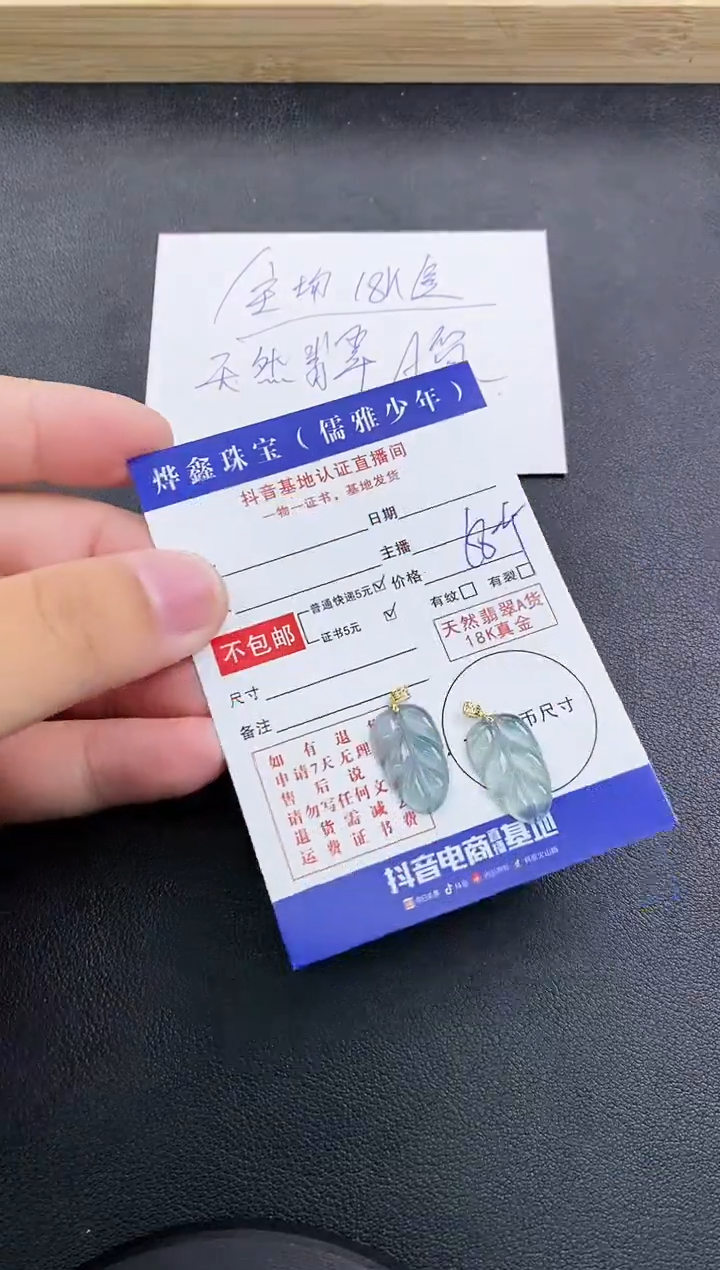 全场 18K
天然翡翠 A货
烨鑫珠宝（儒雅少年）
抖音基地认证直播间
一物一证书，基地发货
日期
主播
普通快递5元☑ 价格
不包邮
证书5元 ☑
有纹□ 有裂□
天然翡翠A货
18K真金
尺寸
备注
币尺寸
如有退
申请7天无理
售后说
请勿写任何文
退货需减
运费证书费
抖音电商直播基地